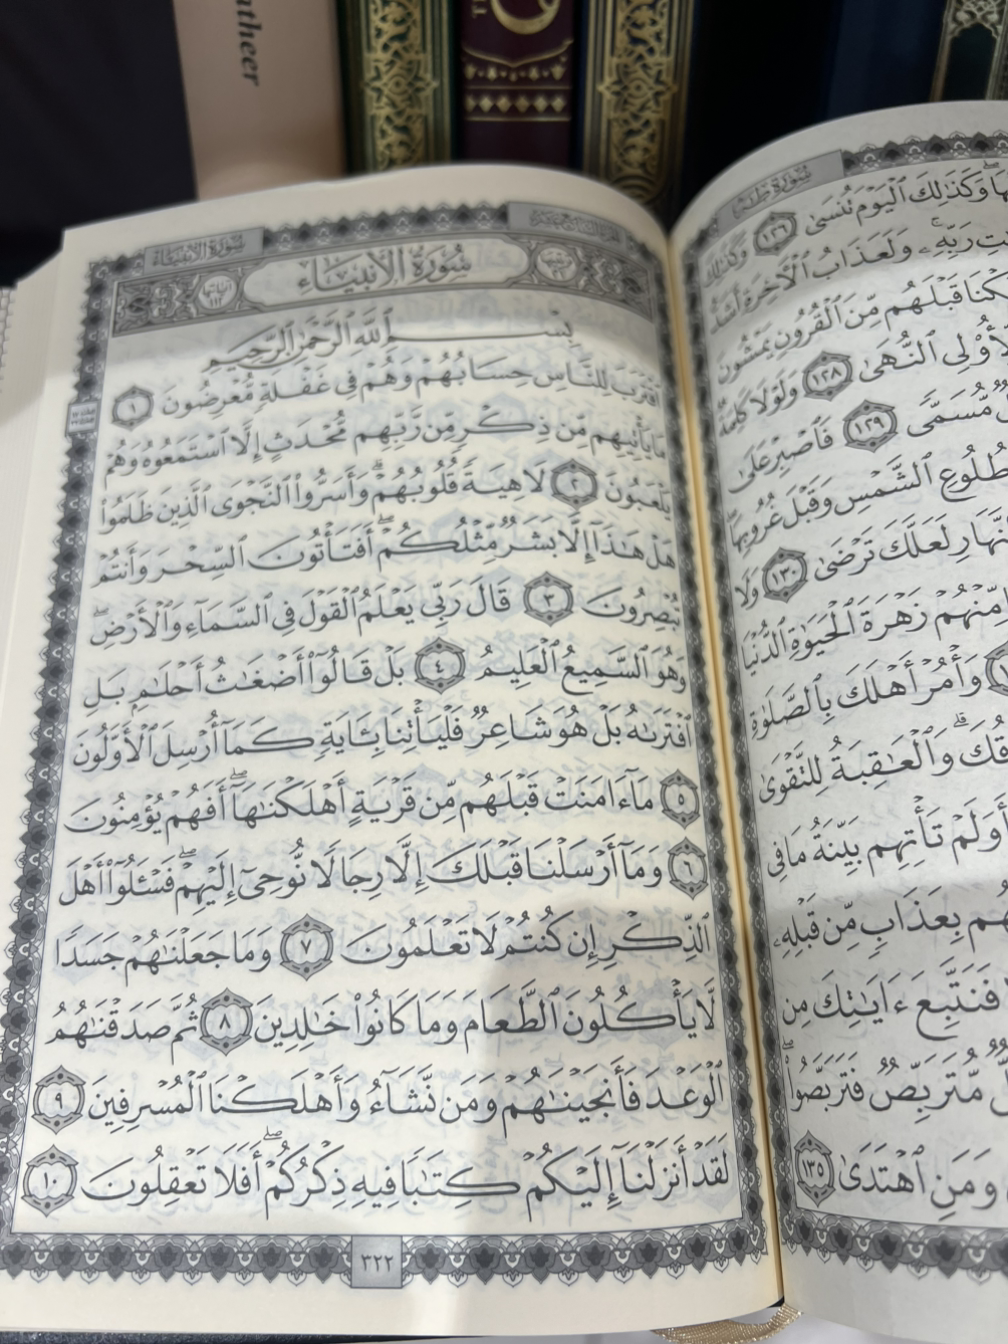 atheer
سُورَةُ طه
وَكَذَٰلِكَ ٱلْيَوْمَ تُنسَىٰ ١٢٦ وَكَذَٰلِكَ
رَبِّهِۦۚ وَلَعَذَابُ ٱلْأَخِرَةِ أَشَدُّ
كْنَا قَبْلَهُم مِّنَ ٱلْقُرُونِ يَمْشُونَ
لِّأُو۟لِى ٱلنُّهَىٰ ١٢٨ وَلَوْلَا كَلِمَةٌ
مُّسَمًّى ١٢٩ فَٱصْبِرْ عَلَىٰ
طُلُوعِ ٱلشَّمْسِ وَقَبْلَ غُرُوبِهَاۖ
نَّهَارِ لَعَلَّكَ تَرْضَىٰ ١٣٠ وَلَا
مِّنْهُمْ زَهْرَةَ ٱلْحَيَوٰةِ ٱلدُّنْيَا
وَأْمُرْ أَهْلَكَ بِٱلصَّلَوٰةِ
قُكَۗ وَٱلْعَٰقِبَةُ لِلتَّقْوَىٰ
أَوَلَمْ تَأْتِهِم بَيِّنَةُ مَا فِى
هُم بِعَذَابٍ مِّن قَبْلِهِۦ
فَنَتَّبِعَ ءَايَٰتِكَ مِن
مُّتَرَبِّصٌ فَتَرَبَّصُوا۟ۖ
وَمَنِ ٱهْتَدَىٰ ١٣٥
سُورَةُ الأَنبِيَاءِ
سُورَةُ الأَنبِيَاءِ
آيَاتُهَا ١١٢
بِسْمِ ٱللَّهِ ٱلرَّحْمَٰنِ ٱلرَّحِيمِ
ٱقْتَرَبَ لِلنَّاسِ حِسَابُهُمْ وَهُمْ فِى غَفْلَةٍ مُّعْرِضُونَ ١
مَا يَأْتِيهِم مِّن ذِكْرٍ مِّن رَّبِّهِم مُّحْدَثٍ إِلَّا ٱسْتَمَعُوهُ وَهُمْ
يَلْعَبُونَ ٢ لَاهِيَةً قُلُوبُهُمْۗ وَأَسَرُّوا۟ ٱلنَّجْوَى ٱلَّذِينَ ظَلَمُوا۟
هَلْ هَٰذَآ إِلَّا بَشَرٌ مِّثْلُكُمْۖ أَفَتَأْتُونَ ٱلسِّحْرَ وَأَنتُمْ
تُبْصِرُونَ ٣ قَالَ رَبِّى يَعْلَمُ ٱلْقَوْلَ فِى ٱلسَّمَآءِ وَٱلْأَرْضِۖ
وَهُوَ ٱلسَّمِيعُ ٱلْعَلِيمُ ٤ بَلْ قَالُوٓا۟ أَضْغَٰثُ أَحْلَٰمٍۭ بَلِ
ٱفْتَرَىٰهُ بَلْ هُوَ شَاعِرٌ فَلْيَأْتِنَا بِـَٔايَةٍ كَمَآ أُرْسِلَ ٱلْأَوَّلُونَ
٥ مَآ ءَامَنَتْ قَبْلَهُم مِّن قَرْيَةٍ أَهْلَكْنَٰهَآۖ أَفَهُمْ يُؤْمِنُونَ
٦ وَمَآ أَرْسَلْنَا قَبْلَكَ إِلَّا رِجَالًا نُّوحِىٓ إِلَيْهِمْۖ فَسْـَٔلُوٓا۟ أَهْلَ
ٱلذِّكْرِ إِن كُنتُمْ لَا تَعْلَمُونَ ٧ وَمَا جَعَلْنَٰهُمْ جَسَدًا
لَّا يَأْكُلُونَ ٱلطَّعَامَ وَمَا كَانُوا۟ خَٰلِدِينَ ٨ ثُمَّ صَدَقْنَٰهُمُ
ٱلْوَعْدَ فَأَنجَيْنَٰهُمْ وَمَن نَّشَآءُ وَأَهْلَكْنَا ٱلْمُسْرِفِينَ ٩
لَقَدْ أَنزَلْنَآ إِلَيْكُمْ كِتَٰبًا فِيهِ ذِكْرُكُمْۖ أَفَلَا تَعْقِلُونَ ١٠
٣٢٢